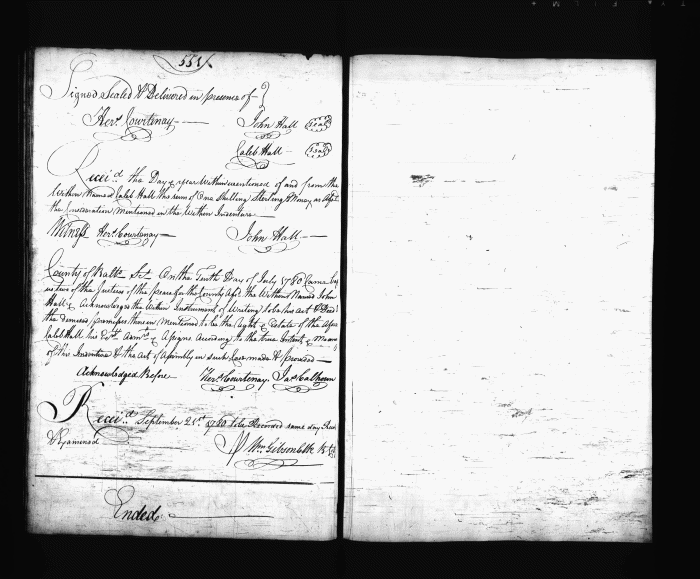 551
Signed Sealed & Delivered in presence of
Herc. Courtenay John Hall Seal
Caleb Hall Seal
Receiv'd the Day & year Within mentioned of and from the
Within Named Caleb Hall the sum of One Shilling Sterling Money as
the Consideration Mentioned in the Within Indenture
Witness Herc. Courtenay John Hall
County of Balto. Sct. On the Tenth Day of July 1780 Came bef
us two of the Justices of the peace for the County Afd. the Within Named John
Hall & Acknowledges the Within Instrument of Writing to be his Act & Deed
the demised premises therein Mentioned to be the Right & Estate of the Afsd
Caleb Hall his Exts. Admrs. & Assigns According to the true Intent & Meang
of this Indenture & the Act of Assembly in such Case made & provided
Acknowledged Before Herc. Courtenay Jas. Calhoun
Receiv'd September 21st 1780 to be Recorded same day Recd
& Examined
Wm. Gibson Clk
Ended